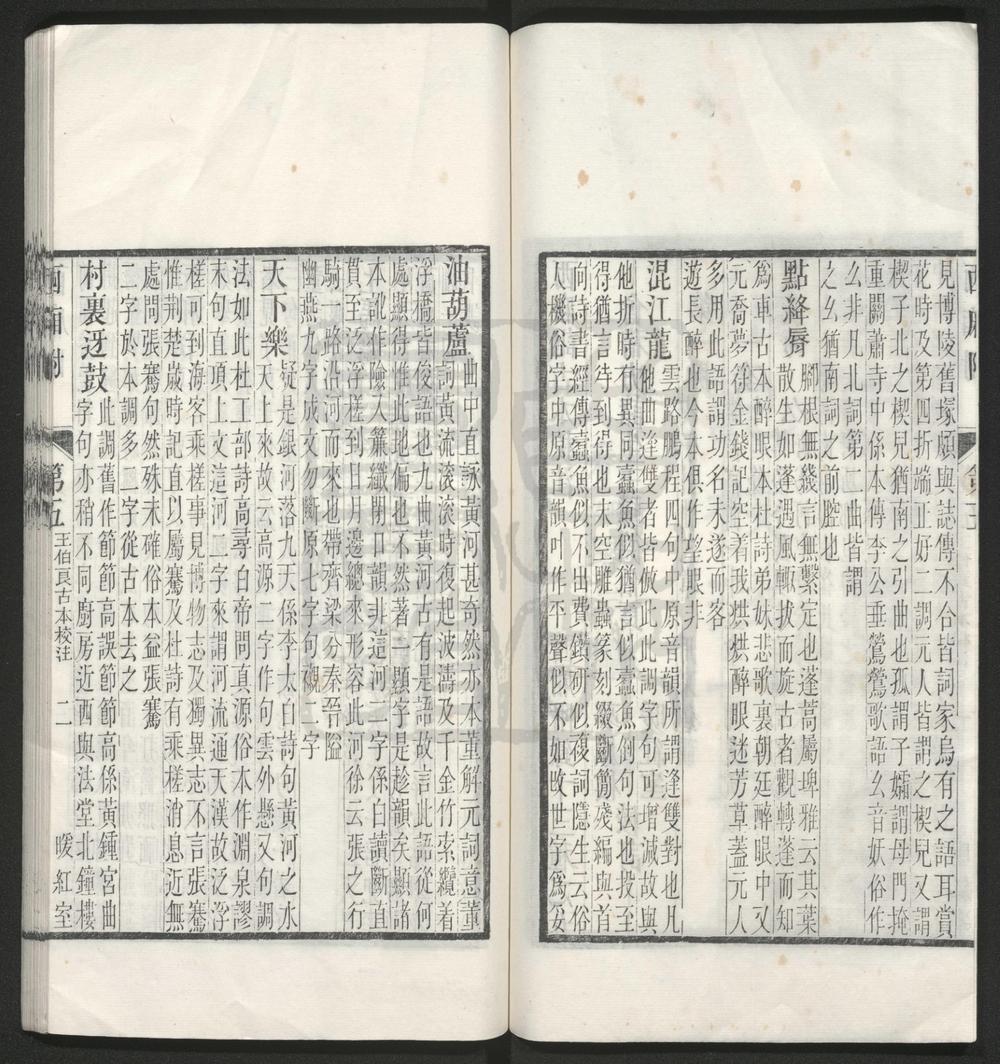 見博陵舊塚頗與誌傳不合皆詞家烏有之語耳賞
花時及第四折端正好二調元人皆謂之楔兒又謂
楔子北之楔兒猶南之引曲也孤謂子孀謂母門掩
重關蕭寺中係本傳李公垂鶯鶯歌語幺音妖俗作
么非凡北詞第二曲皆謂
之幺猶南詞之前腔也
點絳脣
脚根無綫言無繫定也蓬蒿屬埤雅云其葉
散生如蓬遇風輒拔而旋古者觀轉蓬而知
爲車古本醉眼本杜詩弟妹悲歌裏朝廷醉眼中又
元喬夢符金錢記空着我烘烘醉眼迷芳草蓋元人
多用此語謂功名未遂而客
遊長醉也今本俱作望眼非
混江龍
雲路鵬程四句中原音韻所謂逢雙對也凡
他曲逢雙者皆倣此此調字句可增減故與
他折時有異同蠹魚似猶言似蠹魚倒句法也投至
得猶言待到得也末空雕蟲篆刻綴斷簡殘編與首
向詩書經傳蠹魚似不出出費鑽研似複詞隱生云俗
人機俗字中原音韻叶作平聲似不如改世字爲妥
西廂附
第五
油葫蘆
曲中直詠黃河甚奇然亦本董解元詞意董
詞黃流滾滾時復起波濤及千金竹索纜着
浮橋皆俊語也九曲黃河古有是語故言此語從何
處顯得惟此地偏也不然著二顯字是趁韻矣顯諸
本訛作險入簾纖閉口韻非這河二字係白讀斷直
貫至泛浮槎到日月邊總來形容此河徐云張之行
騎一路沿河而來也帶齊梁分秦晉隘
幽燕九字成文勿斷原七字句襯二字
天下樂
疑是銀河落九天係李太白詩句黃河之水
天上來故云高源二字作句雲外懸又句調
法如此杜工部詩高尋白帝問真源俗本作淵泉謬
末句直頂上文這河二字來謂河流通天漢故泛浮
槎可到海客乘槎事見博物志及獨異志不言張騫
惟荆楚歲時記直以屬騫及杜詩有乘槎消息近無
處問張騫句然殊未確俗本益張騫
二字於本調多二字從古本去之
村裏迓鼓
此調舊作節節高誤節節高係黃鍾宮曲
字句亦稍不同廚房近西與法堂北鐘樓
西廂附
第五
王伯良古本校注
二
暖紅室